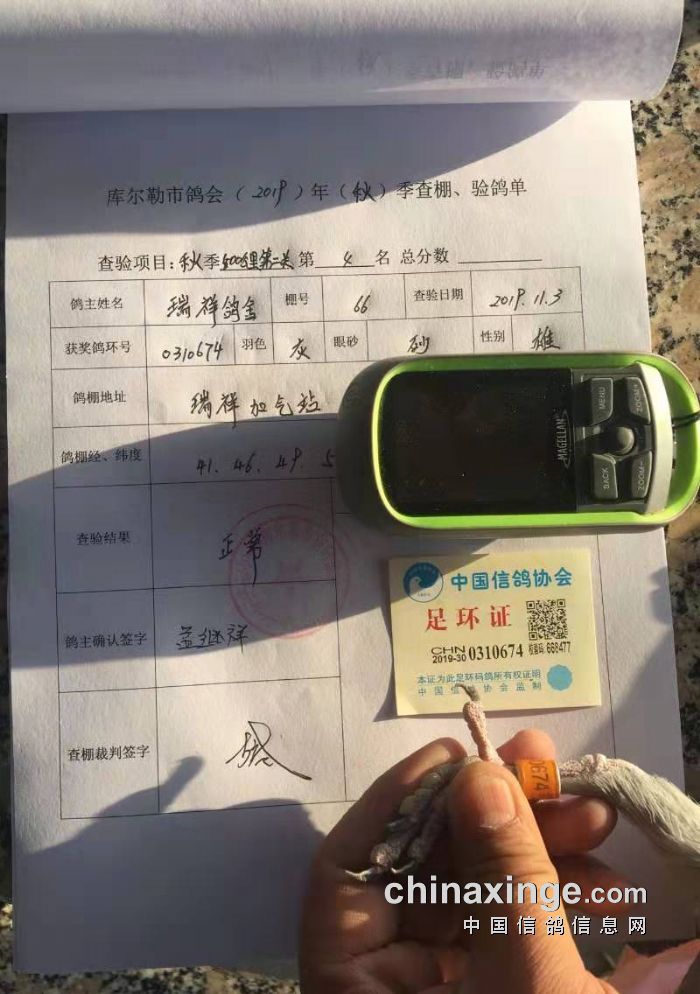 库尔勒市鸽会（2019）年（秋）季查棚、验鸽单
查验项目：秋季500公里第二关 第 4 名 总分数
鸽主姓名 瑞祥鸽舍 棚号 66 查验日期 2019.11.3
获奖鸽环号 0310674 羽色 灰 眼砂 砂 性别 雄
鸽棚地址 瑞祥加气站
鸽棚经、纬度 41.46.49.5
查验结果 正常
鸽主确认签字 孟继祥
查棚裁判签字
MAGELLAN
MENU
ZOOM+
BACK
ZOOM-
中国信鸽协会
足环证
CHN
2019-30 0310674 校验码: 668477
本证为此足环码鸽所有权证明
中国信鸽协会监制
0674
chinaxinge.com
中国信鸽信息网